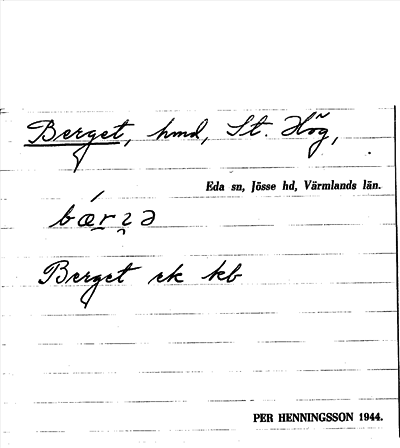 Berget, hmd, St. Hög,
Eda sn, Jösse hd, Värmlands län.
Berget ek kb
PER HENNINGSSON 1944.